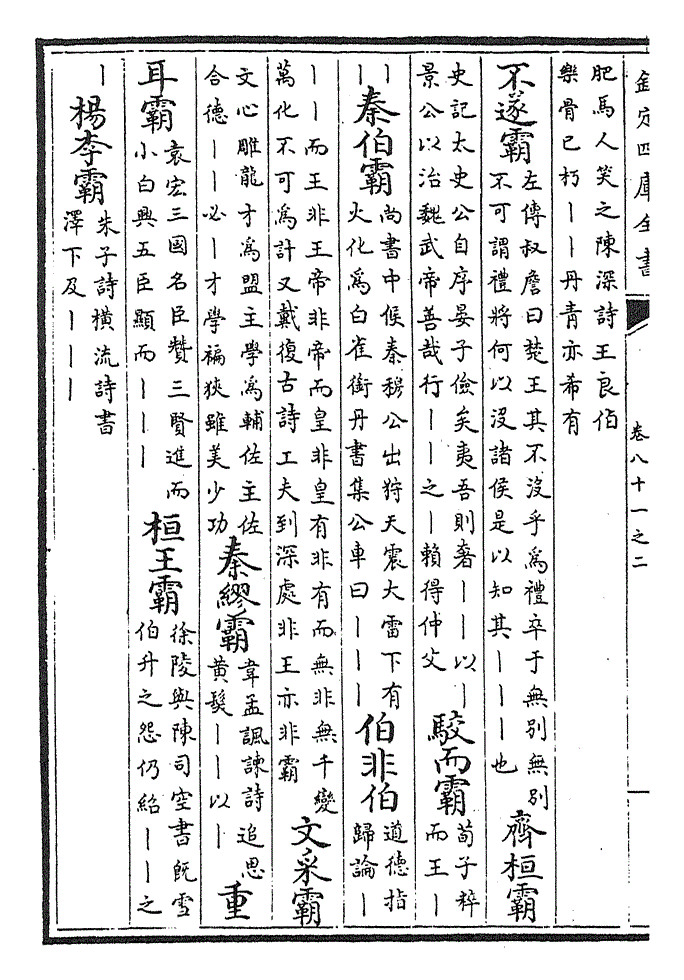 欽定四庫全書
卷八十一之二
肥馬人笑之陳深詩王良伯
樂骨已朽丨丨丹青亦希有
不遂霸
左傳叔詹曰楚王其不沒乎爲禮卒于無别無别
不可謂禮將何以沒諸侯是以知其丨丨丨也
齊桓霸
史記太史公自序晏子儉矣夷吾則奢丨丨以丨
景公以治魏武帝善哉行丨丨之丨賴得仲父
駮而霸
荀子粹
而王丨
丨
丨
秦伯霸
尚書中候秦穆公出狩天震大雷下有
火化爲白雀銜丹書集公車曰丨丨丨
伯非伯
道德指
歸論丨
丨丨而王非王帝非帝而皇非皇有非有而無非無千變
萬化不可爲計又戴復古詩工夫到深處非王亦非霸
文采霸
文心雕龍才爲盟主學爲輔佐主佐
合德丨丨必丨才學褊狹雖美少功
秦繆霸
韋孟諷諫詩追思
黄髮丨丨以丨
重
耳霸
袁宏三國名臣贊三賢進而
小白興五臣顯而丨丨丨
桓王霸
徐陵與陳司空書既雪
伯升之怨仍紹丨丨之
丨
楊李霸
朱子詩橫流詩書
澤下及丨丨丨